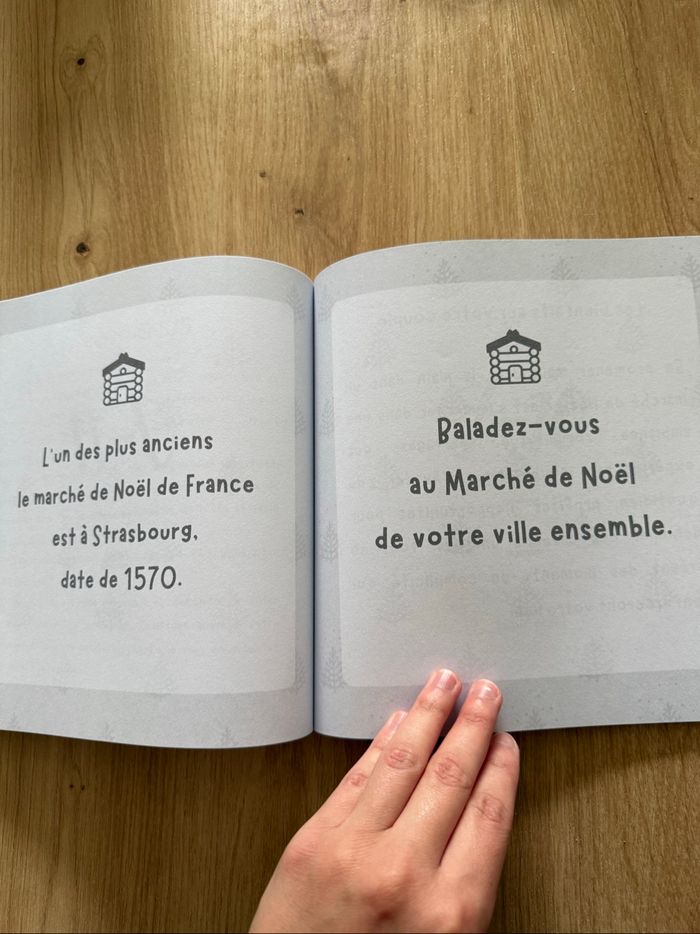 L'un des plus anciens
le marché de Noël de France
est à Strasbourg,
date de 1570.
Baladez-vous
au Marché de Noël
de votre ville ensemble.